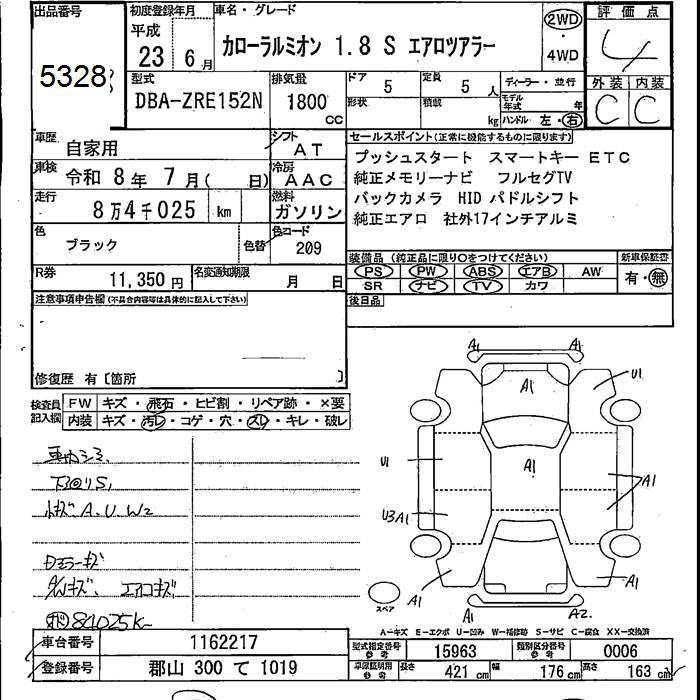 出品番号
5328
初度登録年月
平成
23 6月
車名・グレード
カローラルミオン 1.8 S エアロツアラー
2WD
・
4WD
評価点
4
外装 内装
C C
型式
DBA-ZRE152N
排気量
1800
cc
ドア
5
定員
5 人
形状
積載
kg
ディーラー・並行
モデル年式 年
ハンドル 左・右
車歴
自家用
シフト
AT
車検
令和 8年 7月( 日)
冷房
AAC
走行
8万4千025 km
燃料
ガソリン
色
ブラック
色替
色コード
209
R券
11,350円
名変通知期限
月 日
セールスポイント(正常に機能するものに限ります)
プッシュスタート スマートキー ETC
純正メモリーナビ フルセグTV
バックカメラ HID パドルシフト
純正エアロ 社外17インチアルミ
装備品(純正品に限り○をつけてください)
PS PW ABS エアB AW
SR ナビ TV カワ
新車保証書
有・無
後日品
注意事項申告欄(不具合内容等は具体的に記入して下さい)
修復歴 有〔箇所 〕
検査員
記入欄
FW キズ・飛石・ヒビ割・リペア跡・×要
内装 キズ・汚レ・コゲ・穴・スレ・キレ・破レ
キズ A.U.W2
Dミラーキズ
A/Wキズ. エアロキズ
84025K
A1
A2
U1
A1
A1
U1
A1
U3 A1
A1
A1
A1
A1
A2.
スペア
A−キズ E−エクボ U−凹み W−補修跡 S−サビ C−腐食 XX−交換済
車台番号
1162217
登録番号
郡山 300 て 1019
型式指定番号
参考
15963
類別区分番号
参考
0006
車庫証明用
参考
長さ
421 cm
幅
176 cm
高さ
163 cm